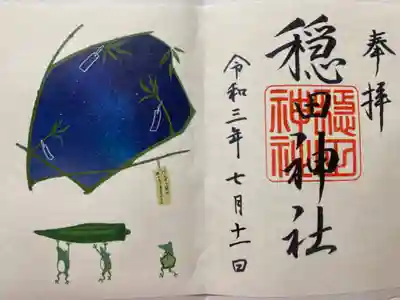 奉拝
穏田神社
穏田神社
令和三年七月十一日